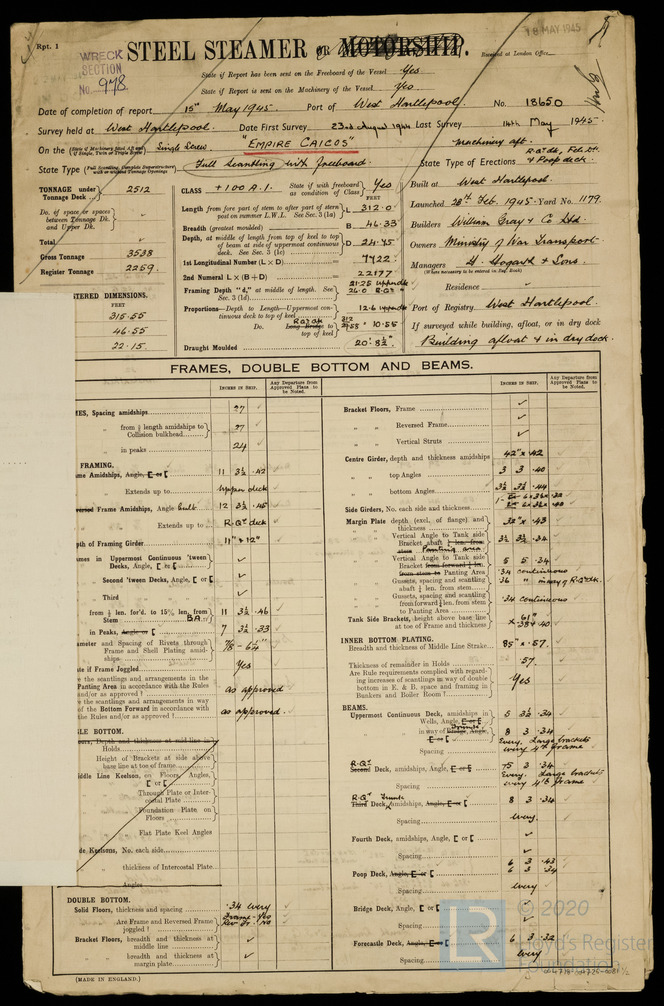 Rpt. 1
18 MAY 1945
WRECK
SECTION
No. 978
STEEL STEAMER OR MOTORSHIP.
Received at London Office
State if Report has been sent on the Freeboard of the Vessel Yes
State if Report is sent on the Machinery of the Vessel Yes
Date of completion of report 15th May 1945 Port of West Hartlepool No. 18650
Survey held at West Hartlepool Date First Survey 23rd August 1944 Last Survey 14th May 1945
On the Single Screw "EMPIRE CAICOS" Machinery aft.
State Type Full Scantling with freeboard. State Type of Erections & Poop deck.
TONNAGE under Tonnage Deck 2512
Do. of space or spaces between Tonnage Dk. and Upper Dk.
Total
Gross Tonnage 3538
Register Tonnage 2259.
CLASS +100 A.1. State if with freeboard as condition of Class Yes
FEET
Length from fore part of stem to after part of stern post on summer L.W.L. See Sec. 3 (1a) L 312.0
Breadth (greatest moulded) B 46.33
Depth, at middle of length from top of keel to top of beam at side of uppermost continuous deck. See Sec. 3 (1c) D 24.45
1st Longitudinal Number (L × D) 7722
2nd Numeral L × (B + D) 22177
Framing Depth "d," at middle of length. See Sec. 3 (1d)
Proportions—Depth to Length—Uppermost continuous deck to top of keel 12.6
Do. to top of keel 10.55
Draught Moulded 20'.8¾"
Built at West Hartlepool
Launched 28th Feb. 1945 Yard No. 1179
Builders William Gray & Co Ltd.
Owners Ministry of War Transport
Managers H. Hogarth & Sons.
(Where necessary to be entered in Reg. Book)
Residence
Port of Registry West Hartlepool
If surveyed while building, afloat, or in dry dock
Building afloat & in dry dock.
TERED DIMENSIONS.
FEET
315.55
46.55
22.15
FRAMES, DOUBLE BOTTOM AND BEAMS.
INCHES IN SHIP.
Any Departure from Approved Plans to be Noted.
INCHES IN SHIP.
Any Departure from Approved Plans to be Noted.
MES, Spacing amidships 27
" from ⅕ length amidships to Collision bulkhead 27
" in peaks 24
FRAMING.
me Amidships, Angle, [ or [ 11 3½ .42
Extends up to Upper deck
Frame Amidships, Angle bulb 12 3½ .45
Extends up to R.Qr deck
pth of Framing Girder 11" & 12"
mes in Uppermost Continuous 'tween Decks, Angle, [ or [
Second 'tween Decks, Angle, [ or [
Third
from ⅕ len. for'd. to 15% len. from Stem B.A. 11 3½ .46
in Peaks, Angle or [ 7 3½ .33
meter and Spacing of Rivets through Frame and Shell Plating amidships 7/8 - 6¼"
te if Frame Joggled Yes
e the scantlings and arrangements in the Panting Area in accordance with the Rules and/or as approved? as approved
e the scantlings and arrangements in way of the Bottom Forward in accordance with the Rules and/or as approved? as approved.
LE BOTTOM.
Holds
Height of Brackets at side above base line at toe of frame
ddle Line Keelson, on Floors, Angles, [ or [
Through Plate or Intercostal Plate
Foundation Plate on Floors
Flat Plate Keel Angles
de Keelsons, No. each side
thickness of Intercostal Plate
Angles
DOUBLE BOTTOM.
Solid Floors, thickness and spacing .34 every
" Are Frame and Reversed Frame joggled? Frame - Yes Rev Fr. No
Bracket Floors, breadth and thickness at middle line
" breadth and thickness at margin plate
Bracket Floors, Frame
" " Reversed Frame
" " Vertical Struts
Centre Girder, depth and thickness amidships 42" × .42
" top Angles 3 3 .40
" bottom Angles 3½ 3½ .44
Side Girders, No. each side and thickness
Margin Plate depth (excl. of flange) and thickness 32" × .43
" Vertical Angle to Tank side Bracket abaft Panting area 3½ 3½ .34
" Vertical Angle to Tank side Bracket Panting Area 5 5 .34
" Gussets, spacing and scantling abaft ¼ len. from stem .34 continuous
" Gussets, spacing and scantling from forward ¼ len. from stem to Panting Area .34 continuous
Tank Side Brackets, height above base line at toe of Frame and thickness
INNER BOTTOM PLATING.
Breadth and thickness of Middle Line Strake 85" × .57.
Thickness of remainder in Holds .57.
Are Rule requirements complied with regarding increases of scantlings in way of double bottom in E. & B. space and framing in Bunkers and Boiler Room? Yes
BEAMS.
Uppermost Continuous Deck, amidships in Wells, Angle, [ or [ 5 3 .34
" in way of 8 3 .34
Spacing Every. Large brackets every 4th frame
R.Qr Deck, amidships, Angle, [ or [ 7.5 3 .34
Spacing Every. Large brackets every 4th frame
R.Qr Deck, amidships, Angle, [ or [ 8 3 .34
Spacing every.
Fourth Deck, amidships, Angle, [ or [
Spacing
Poop Deck, Angle, [ or [ 6 3 .43
6 3 .34
Spacing every
Bridge Deck, Angle, [ or [
Spacing
Forecastle Deck, Angle, [ or [ 6 3 .32
Spacing every
(MADE IN ENGLAND.)
LR
© 2020
Lloyd's Register
Foundation